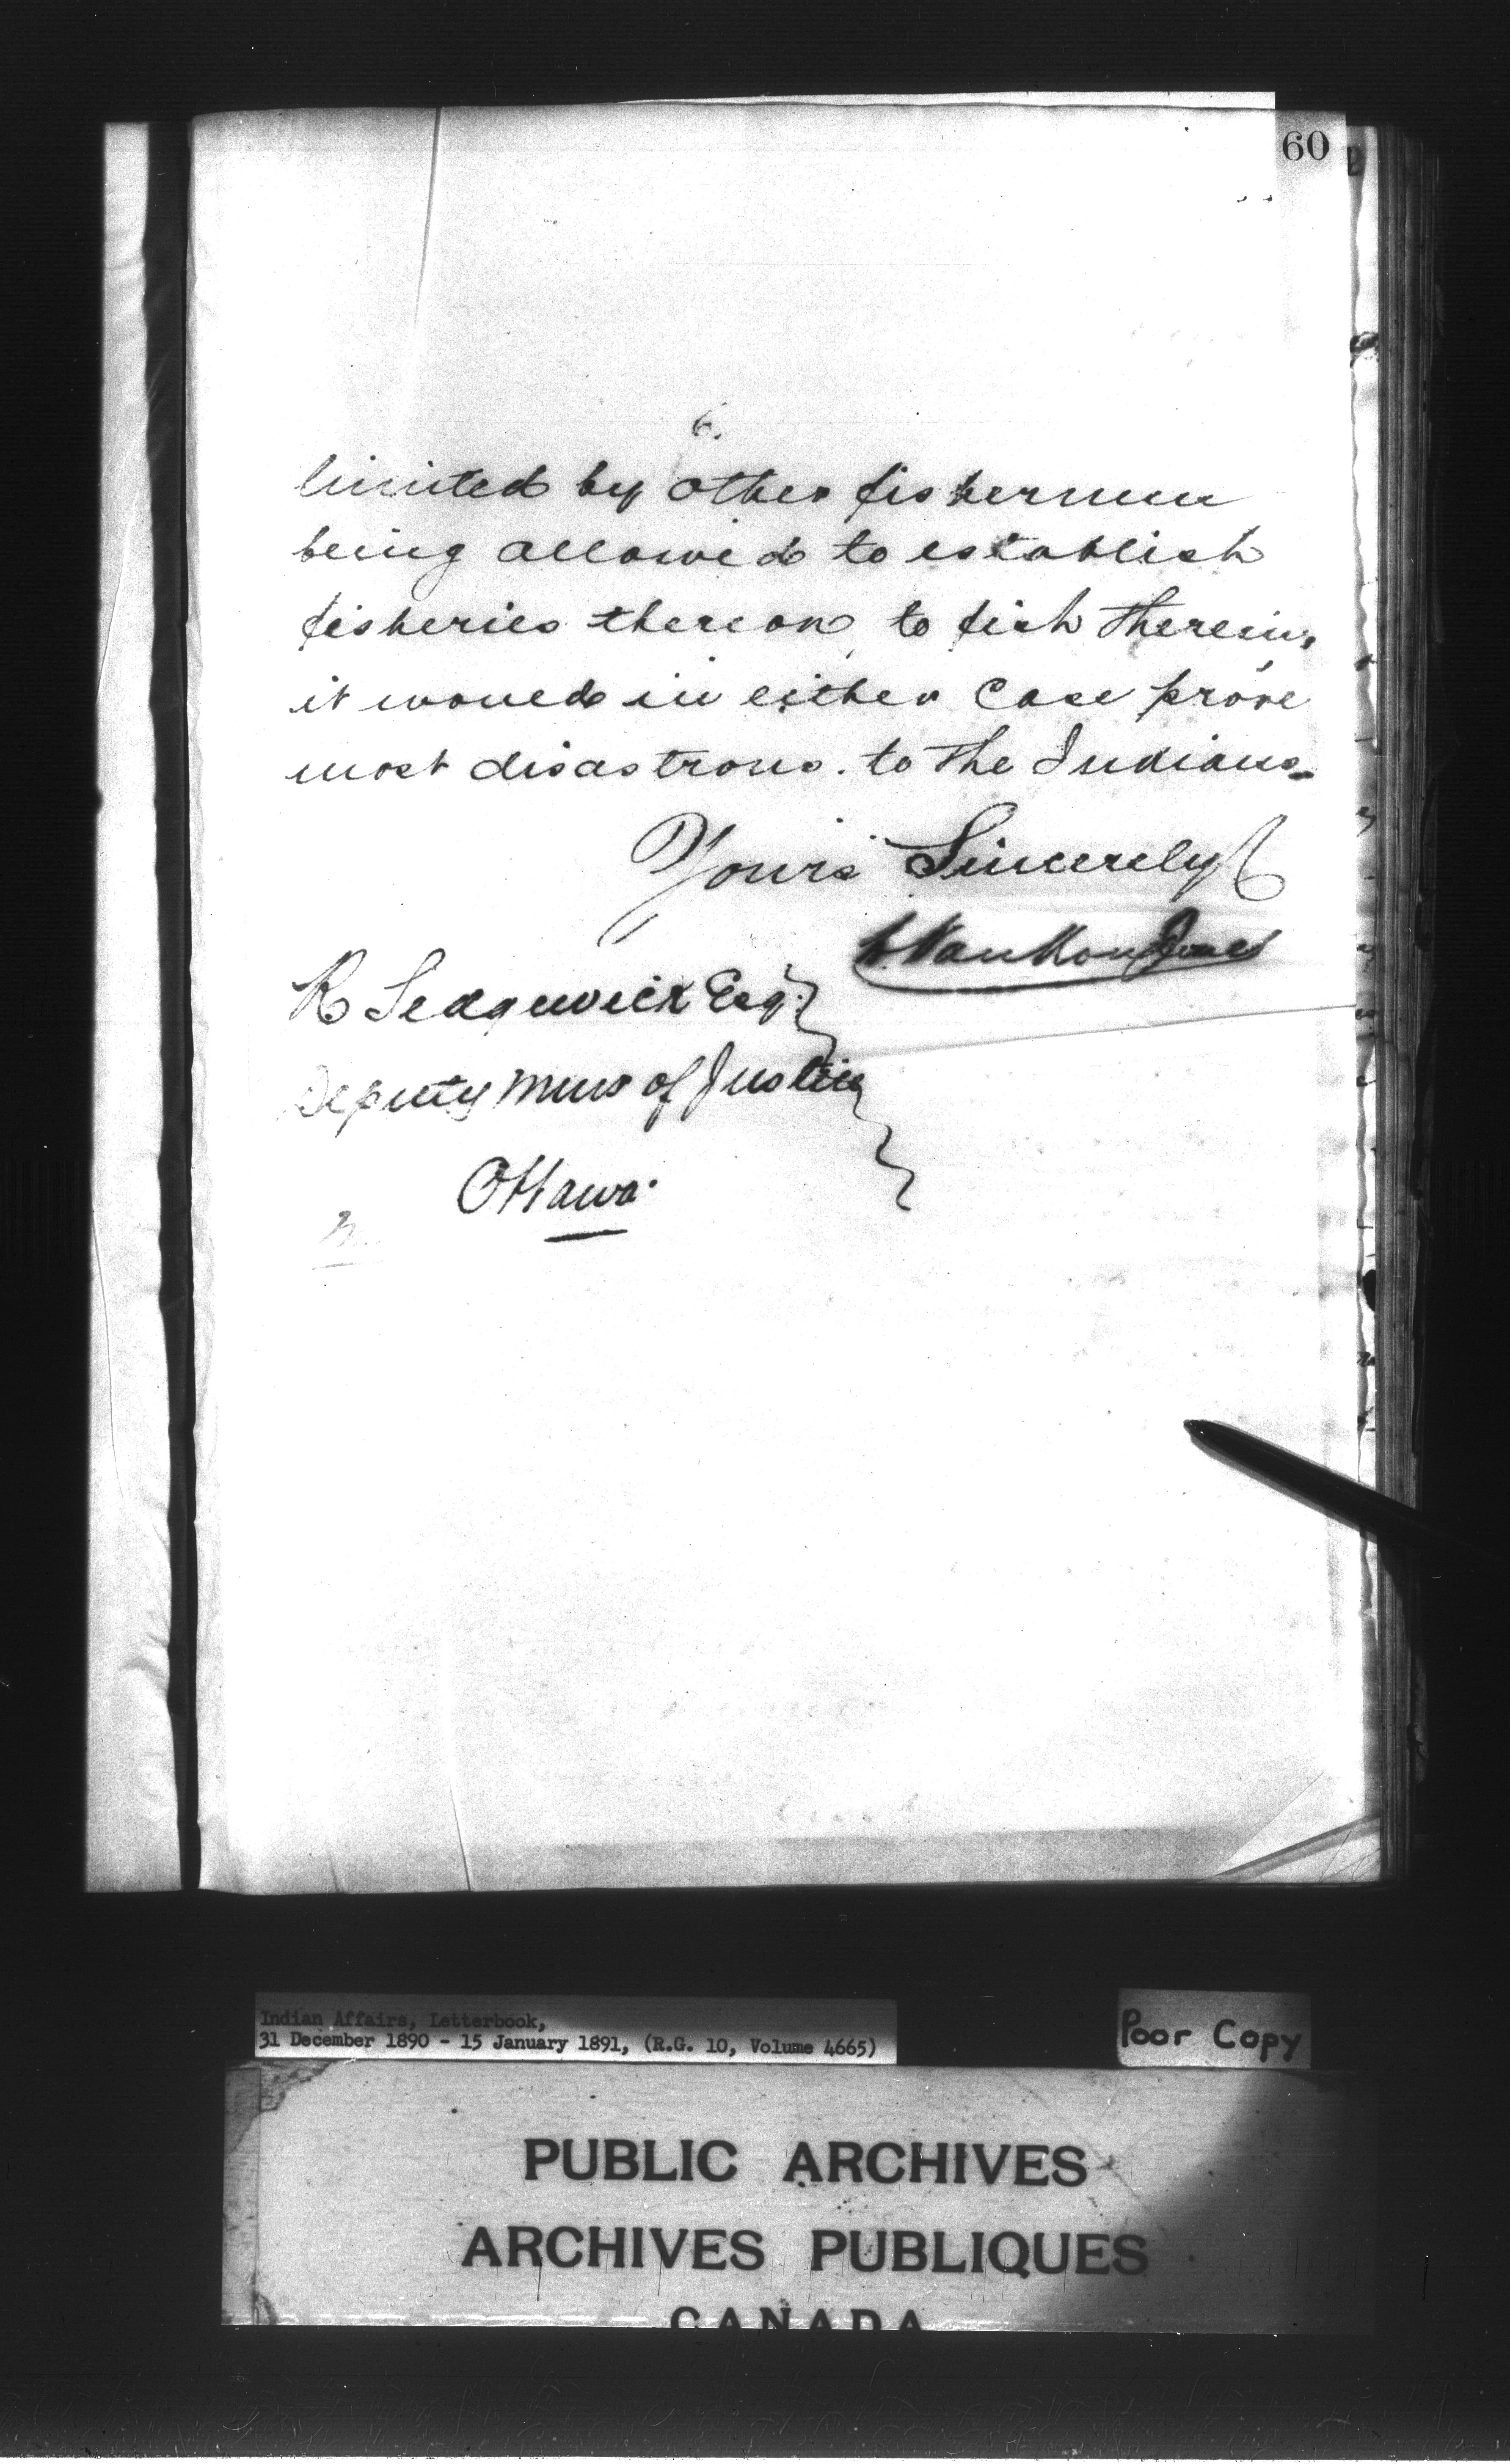 60
6.
limited by other fishermen
being allowed to establish
fisheries thereon, to fish therein,
it would in either case prove
most disastrous. to the Indians_
Yours Sincerely
L. Vankoughnet
R Sedgewick Esq.
Deputy Minr of Justice
Ottawa.
Indian Affairs, Letterbook,
31 December 1890 - 15 January 1891, (R.G. 10, Volume 4665)
Poor Copy
PUBLIC ARCHIVES
ARCHIVES PUBLIQUES
CANADA